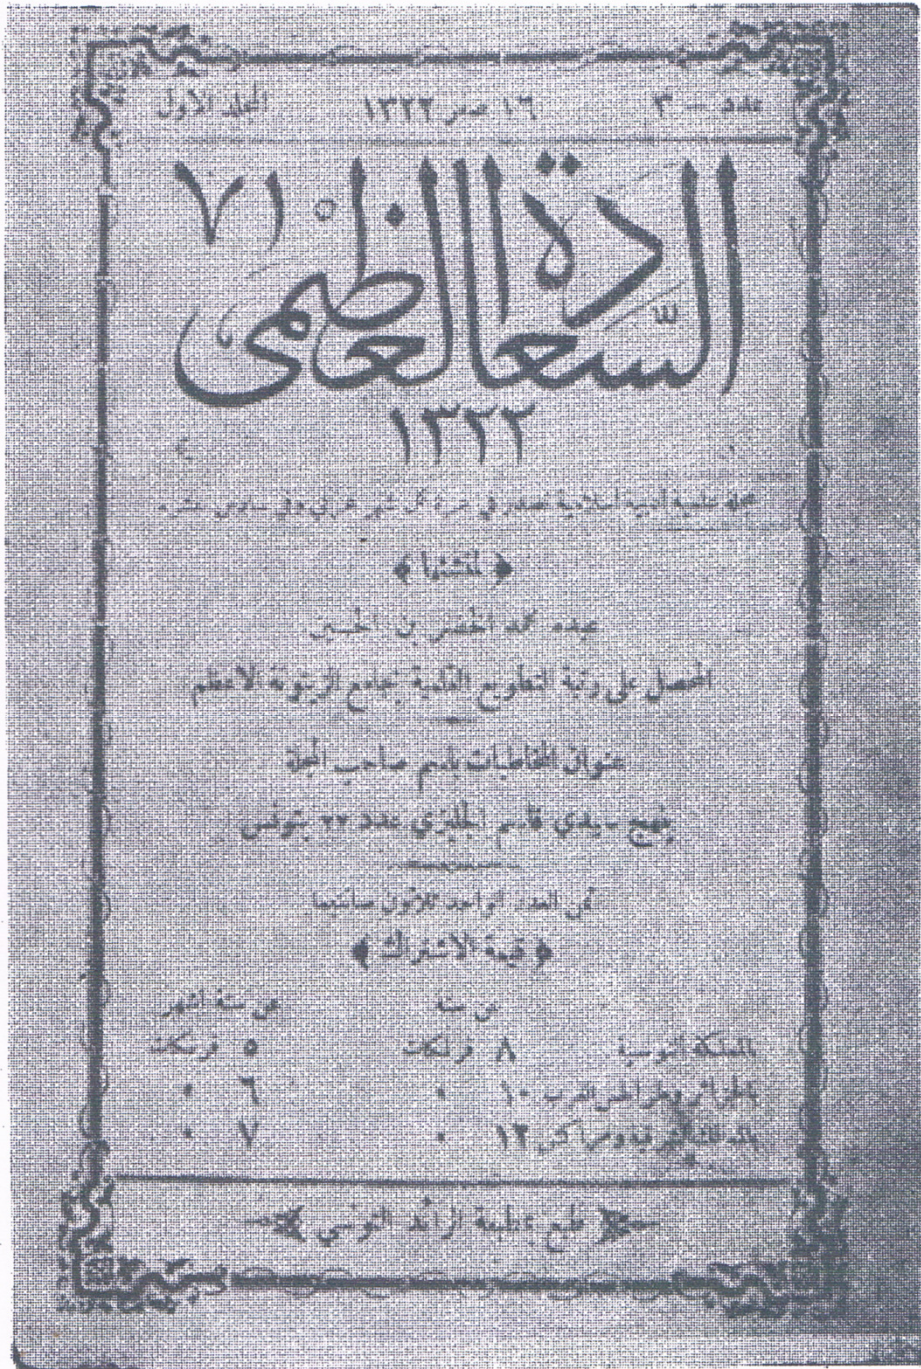 عدد — ٣ ١٦ صفر ١٣٢٢ المجلد الاول
السعادة العظمى
١٣٢٢
مجلة علمية أدبية اسلامية تصدر في غرة كل شهر عربي وفي سادس عشره
﴿ لمنشئها ﴾
عبده محمد الخضر بن الحسين
المحصل على رتبة التطويع العلمية بجامع الزيتونة الاعظم
عنوان المخاطبات باسم صاحب المجلة
بنهج سيدي قاسم الجليزي عدد ٢٢ بتونس
ثمن العدد الواحد ثلاثون صانتيما
﴿ قيمة الاشتراك ﴾
عن سنة عن ستة اشهر
بالمملكة التونسية ٨ فرنكات ٥ فرنكات
بالجزائر وطرابلس الغرب ١٠ ٦
١٢ ٧
طبع بمطبعة الرائد التونسي